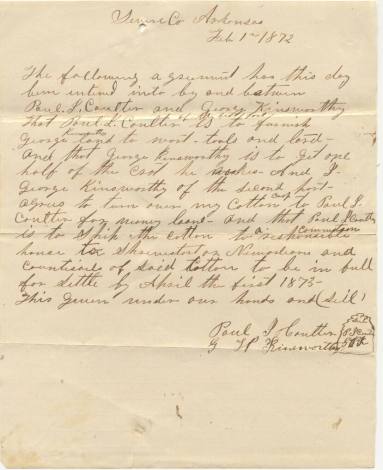 Sevier Co Arkansas
Feb 1st 1872
The following agreement has this day
been entered into by and between
Paul. S. Coulter and George Kinsworthy
That Paul S. Coulter is to furnish
George Kinsworthy land to work - tools and
And that George Kinsworthy is to get one
half of the he makes - And I
George Kinsworthy of the second part -
agrees to turn over my Cotton Crop to Paul S.
Coulter for money loand - and that Paul S Coulter
is to ship the cotton to a Commission
house to Shreveport or New orleans and
of said Cotton to be in full
for settle by April the first 1873 -
This Given under our hands and (seal)
Paul S Coulter
G Kinsworthy